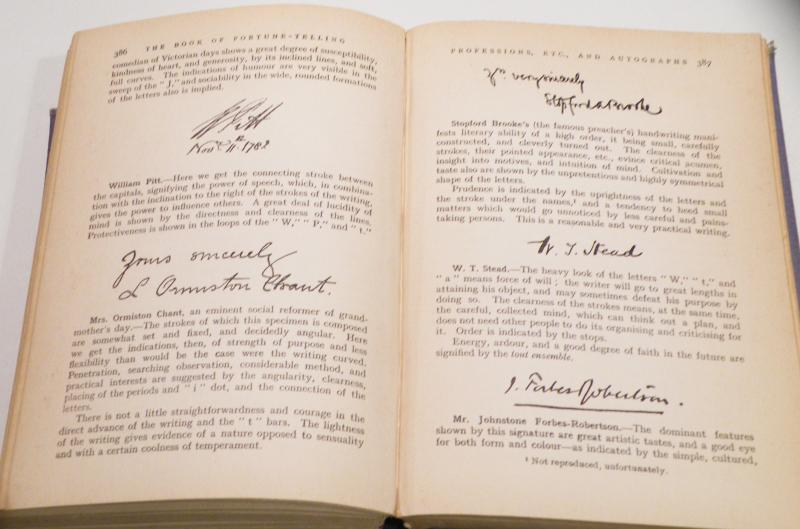 386 THE BOOK OF FORTUNE-TELLING
comedian of Victorian days shows a great degree of susceptibility,
kindness of heart, and generosity, by its inclined lines, and soft,
full curves. The indications of humour are very visible in the
sweep of the "J," and sociability in the wide, rounded formations
of the letters also is implied.
W Pitt
William Pitt.—Here we get the connecting stroke between
the capitals, signifying the power of speech, which, in combina-
tion with the inclination to the right of the strokes of the writing,
gives the power to influence others. A great deal of lucidity of
mind is shown by the directness and clearness of the lines.
Protectiveness is shown in the loops of the "W," "P," and "t."
Yours sincerely
L Ormiston Chant.
Mrs. Ormiston Chant, an eminent social reformer of grand-
mother's day.—The strokes of which this specimen is composed
are somewhat set and fixed, and decidedly angular. Here
we get the indications, then, of strength of purpose and less
flexibility than would be the case were the writing curved.
Penetration, searching observation, considerable method, and
practical interests are suggested by the angularity, clearness,
placing of the periods and "i" dot, and the connection of the
letters.
There is not a little straightforwardness and courage in the
direct advance of the writing and the "t" bars. The lightness
of the writing gives evidence of a nature opposed to sensuality
and with a certain coolness of temperament.
PROFESSIONS, ETC., AND AUTOGRAPHS 387
Yrs very sincerely
Stopford A Brooke
Stopford Brooke's (the famous preacher's) handwriting mani-
fests literary ability of a high order, it being small, carefully
constructed, and cleverly turned out. The clearness of the
strokes, their pointed appearance, etc., evince critical acumen,
insight into motives, and intuition of mind. Cultivation and
taste also are shown by the unpretentious and highly symmetrical
shape of the letters.
Prudence is indicated by the uprightness of the letters and
the stroke under the names,¹ and a tendency to heed small
matters which would go unnoticed by less careful and pains-
taking persons. This is a reasonable and very practical writing.
W. T. Stead
W. T. Stead.—The heavy look of the letters "W," "t," and
"a" means force of will; the writer will go to great lengths in
attaining his object, and may sometimes defeat his purpose by
doing so. The clearness of the strokes means, at the same time,
the careful, collected mind, which can think out a plan, and
does not need other people to do its organising and criticising for
it. Order is indicated by the stops.
Energy, ardour, and a good degree of faith in the future are
signified by the tout ensemble.
J. Forbes Robertson.
Mr. Johnstone Forbes-Robertson.—The dominant features
shown by this signature are great artistic tastes, and a good eye
for both form and colour—as indicated by the simple, cultured,
¹ Not reproduced, unfortunately.